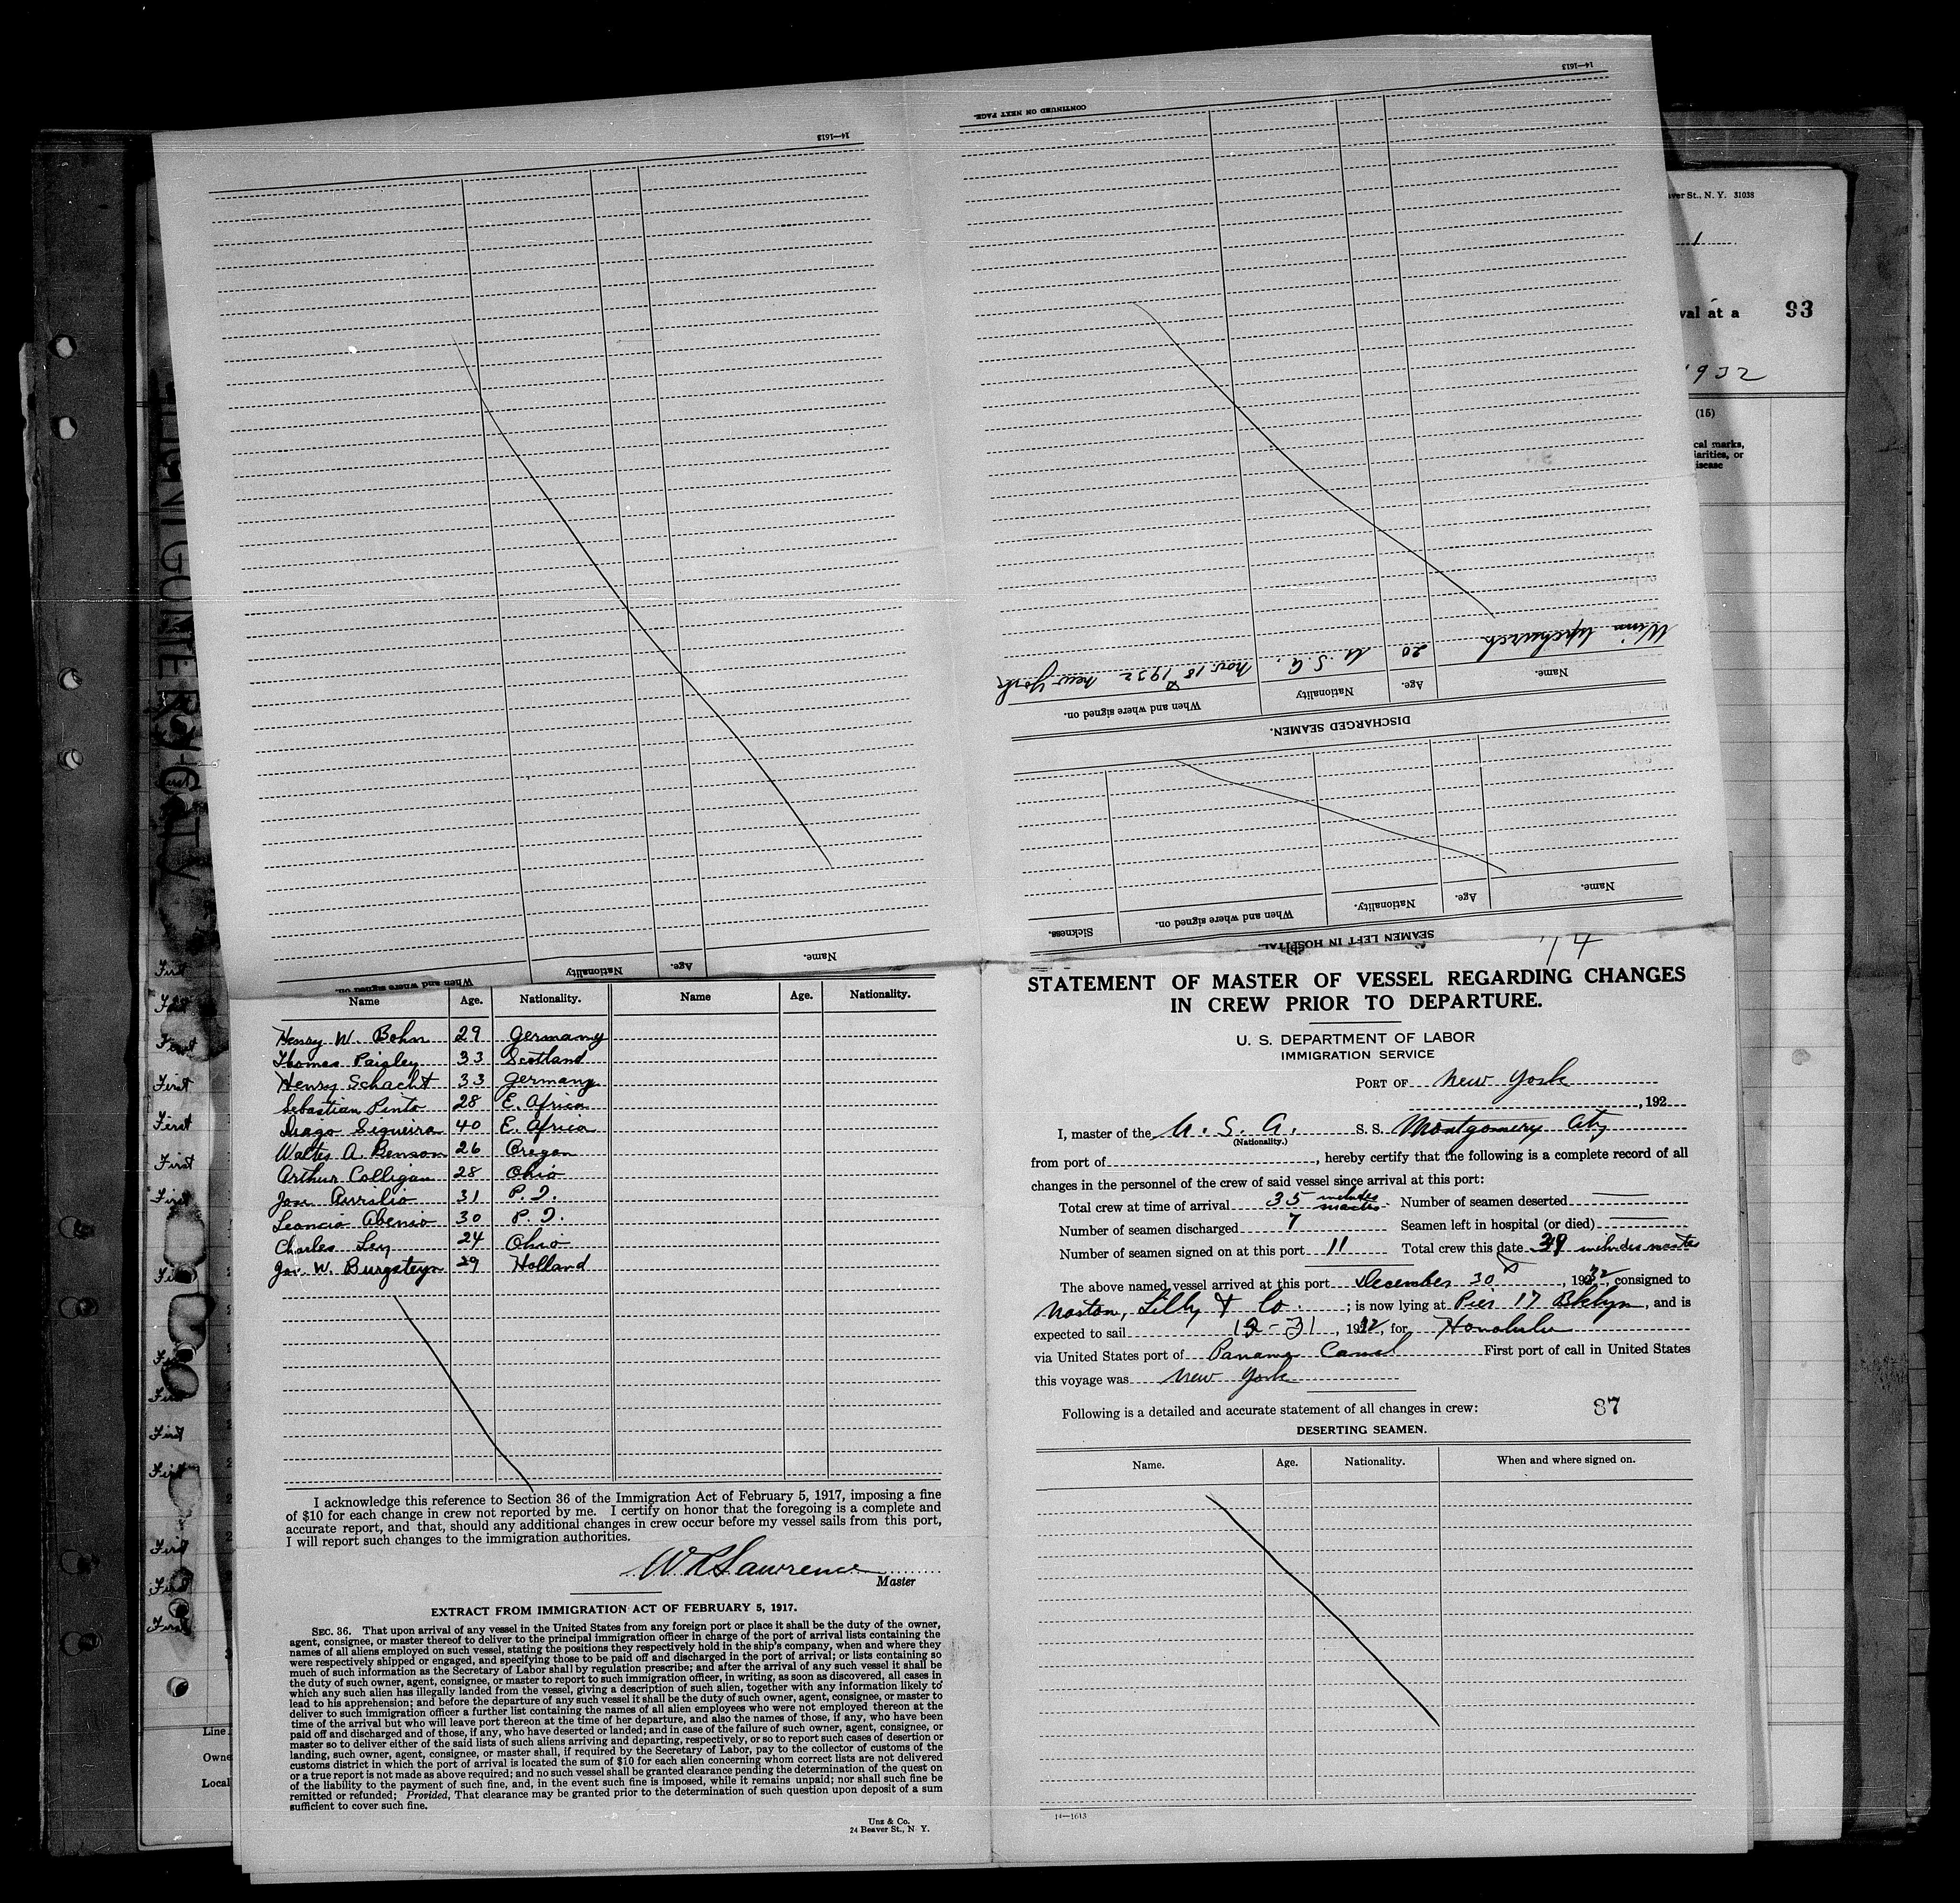 14—1613
14—1613
CONTINUED ON NEXT PAGE.
aver St., N. Y. 31038
1
val at a 93
1932
(15)
cal marks,
larities, or
isease
Name. Age. Nationality When and where signed on.
DISCHARGED SEAMEN.
Name. Age. Nationality When and where signed on.
Upchurch 20 U. S. A. Nov. 18 1932 New York
SEAMEN LEFT IN HOSPITAL.
Name. Age. Nationality. When and where signed on. Sickness.
MONTGOMERY CITY
First
First
First
First
First
First
First
First
First
First
First
First
First
Line
Owne
Local
Name Age. Nationality. Name Age. Nationality.
Henry W. Bohn 29 Germany
Thomas Paisley 33 Scotland
Henry Schacht 33 Germany
Sebastian Pinto 28 E. Africa
Siqueira 40 E. Africa
Walter A. Benson 26 Oregon
Arthur Colligan 28 Ohio
Jose 31 P. I.
Leoncio Abenio 30 P. I.
Charles Ley 24 Ohio
W. Burgsteyn 29 Holland
I acknowledge this reference to Section 36 of the Immigration Act of February 5, 1917, imposing a fine
of $10 for each change in crew not reported by me. I certify on honor that the foregoing is a complete and
accurate report, and that, should any additional changes in crew occur before my vessel sails from this port,
I will report such changes to the immigration authorities.
W R Lawrence
Master
EXTRACT FROM IMMIGRATION ACT OF FEBRUARY 5, 1917.
SEC. 36. That upon arrival of any vessel in the United States from any foreign port or place it shall be the duty of the owner,
agent, consignee, or master thereof to deliver to the principal immigration officer in charge of the port of arrival lists containing the
names of all aliens employed on such vessel, stating the positions they respectively hold in the ship's company, when and where they
were respectively shipped or engaged, and specifying those to be paid off and discharged in the port of arrival; or lists containing so
much of such information as the Secretary of Labor shall by regulation prescribe; and after the arrival of any such vessel it shall be
the duty of such owner, agent, consignee, or master to report to such immigration officer, in writing, as soon as discovered, all cases in
which any such alien has illegally landed from the vessel, giving a description of such alien, together with any information likely to
lead to his apprehension; and before the departure of any such vessel it shall be the duty of such owner, agent, consignee, or master to
deliver to such immigration officer a further list containing the names of all alien employees who were not employed thereon at the
time of the arrival but who will leave port thereon at the time of her departure, and also the names of those, if any, who have been
paid off and discharged and of those, if any, who have deserted or landed; and in case of the failure of such owner, agent, consignee, or
master so to deliver either of the said lists of such aliens arriving and departing, respectively, or so to report such cases of desertion or
landing, such owner, agent, consignee, or master shall, if required by the Secretary of Labor, pay to the collector of customs of the
customs district in which the port of arrival is located the sum of $10 for each alien concerning whom correct lists are not delivered
or a true report is not made as above required; and no such vessel shall be granted clearance pending the determination of the quest on
of the liability to the payment of such fine, and, in the event such fine is imposed, while it remains unpaid; nor shall such fine be
remitted or refunded; Provided, That clearance may be granted prior to the determination of such question upon deposit of a sum
sufficient to cover such fine.
Unz & Co.
24 Beaver St., N. Y.
14
STATEMENT OF MASTER OF VESSEL REGARDING CHANGES
IN CREW PRIOR TO DEPARTURE.
U. S. DEPARTMENT OF LABOR
IMMIGRATION SERVICE
PORT OF New York
, 192
I, master of the U. S. A. S. S. Montgomery City
(Nationality.)
from port of , hereby certify that the following is a complete record of all
changes in the personnel of the crew of said vessel since arrival at this port:
Total crew at time of arrival 35 includes master Number of seamen deserted —
Number of seamen discharged 7 Seamen left in hospital (or died) —
Number of seamen signed on at this port 11 Total crew this date 39 includes master
The above named vessel arrived at this port December 30, 1932, consigned to
Norton, Lilly & Co. ; is now lying at Pier 17 Bklyn, and is
expected to sail 12-31, 1932, for Honolulu
via United States port of Panama Canal First port of call in United States
this voyage was New York
Following is a detailed and accurate statement of all changes in crew: 87
DESERTING SEAMEN.
Name. Age. Nationality. When and where signed on.
14—1613